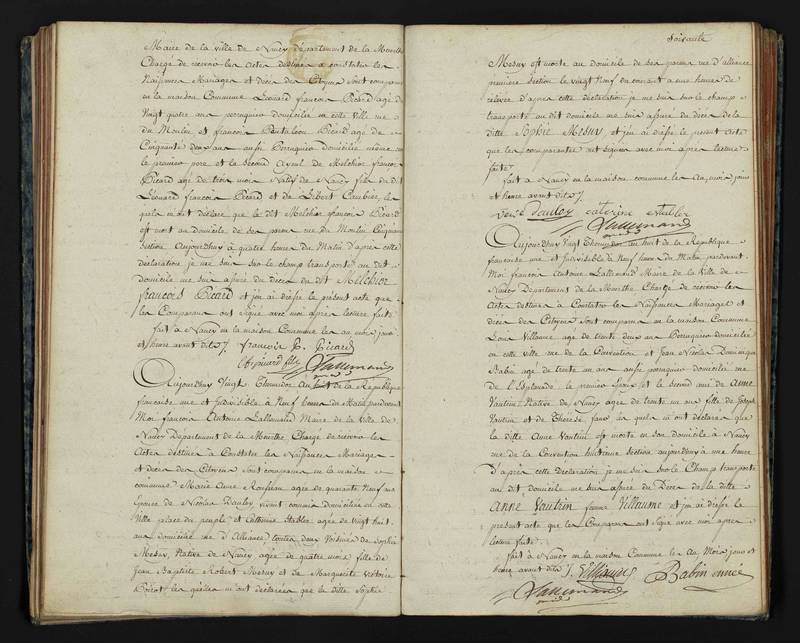 Maire de la ville de Nancy département de la Meurthe
Chargé de recevoir les Actes destinés a constater les
Naissances Mariages et décès des Citoyens sont comparus
en la maison Commune Léonard françois Picard agé de
Vingt quatre ans perruquier domicilié en cette ville rue
du Moulin et françois Pantaleon Picard agé de
Cinquante deux ans aussi Perruquier domicilié même rue
le premier pere et le second Ayeul de Melchior françois
Picard agé de trois mois Natif de Nancy fils du dit
Léonard françois Picard et de Libert les
quels m'ont déclaré que le dit Melchior françois Picard
est mort au domicile de ses pere et mere rue du Moulin
Section Aujourdhuy à quatre heures du Matin d'après cette
déclaration je me suis sur le champ transporté au dit
domicile me suis assuré du décès du dit Melchior
françois Picard et j'en ai dressé le présent acte que
les Comparans ont signé avec moi après lecture faite
fait à Nancy en la maison Commune les an mois jour
et heure avant dits
françois P. Picard
Lallemand
Aujourdhuy Vingt Thermidor An huit de la République
française une et Indivisible à Neuf heures du Matin pardevant
Moi françois Antoine Lallemand Maire de la Ville de
Nancy Département de la Meurthe Chargé de recevoir les
Actes destinés à Constater les Naissances Mariages
et décès des Citoyens sont comparues en la maison
commune Marie Anne agée de quarante Neuf ans
Epouse de Nicolas Dauloy vivant domiciliée en cette
Ville place du peuple et Catherine Stabler agée de Vingt huit
ans domiciliée rue d'Alliance toutes deux Voisines de Sophie
Mesny Native de Nancy agée de quatre mois fille de
Jean Baptiste Robert Mesny et de Marguerite Victoire
les quelles m'ont déclaré que la dite Sophie
Soixante
Mesny est morte au domicile de ses pere et mere rue d'alliance
premiere Section le vingt Neuf du courant a une heure de
relevée d'après cette déclaration je me suis sur le champ
transporté au dit domicile me suis assuré du décès de la
ditte Sophie Mesny et j'en ai dressé le present Acte
que les comparantes ont signé avec moi après lecture
faite
fait à Nancy en la maison commune les An, mois jour
et heure avant dits
Dauloy caterine stabler
Lallemand
Aujourdhuy Vingt Thermidor An huit de la République
française une et Indivisible à Neuf heures du Matin pardevant
Moi françois Antoine Lallemand Maire de la Ville de
Nancy Département de la Meurthe Chargé de recevoir les
Actes destinés à Constater les Naissances Mariages et
décès des Citoyens sont comparus en la maison Commune
Louis Villaume agé de trente deux ans Perruquier domicilié
en cette ville rue de la Convention et Jean Nicolas Dominique
Babin agé de trente un ans aussi perruquier domicilié rue
de l'Esplanade le premier Epoux et le second ami de Anne
Vautrin Native de Nancy agée de trente un ans fille de Joseph
Vautrin et de Thérèse les quels m'ont déclaré que
la ditte Anne Vautrin est morte en son domicile à Nancy
rue de la Convention huitieme Section aujourdhuy à une heure
d'après cette Déclaration je me suis sur le Champ transporté
au dit domicile me suis assuré du Décès de la ditte
Anne Vautrin femme Villaume et j'en ai dressé le
présent acte que les Comparans ont signé avec moi apres
lecture faite
fait à Nancy en la maison Commune les An, Mois jour et
heure avant dits Villaume Babin
Lallemand